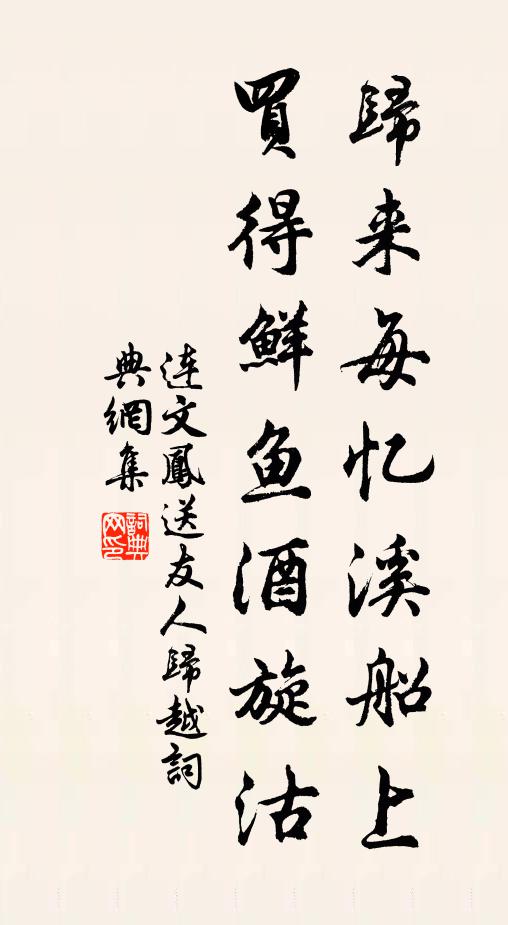 歸来每忆溪船上
買得鮮鱼酒旋沽
連文鳳送友人歸越詞
典網集
詞典网印